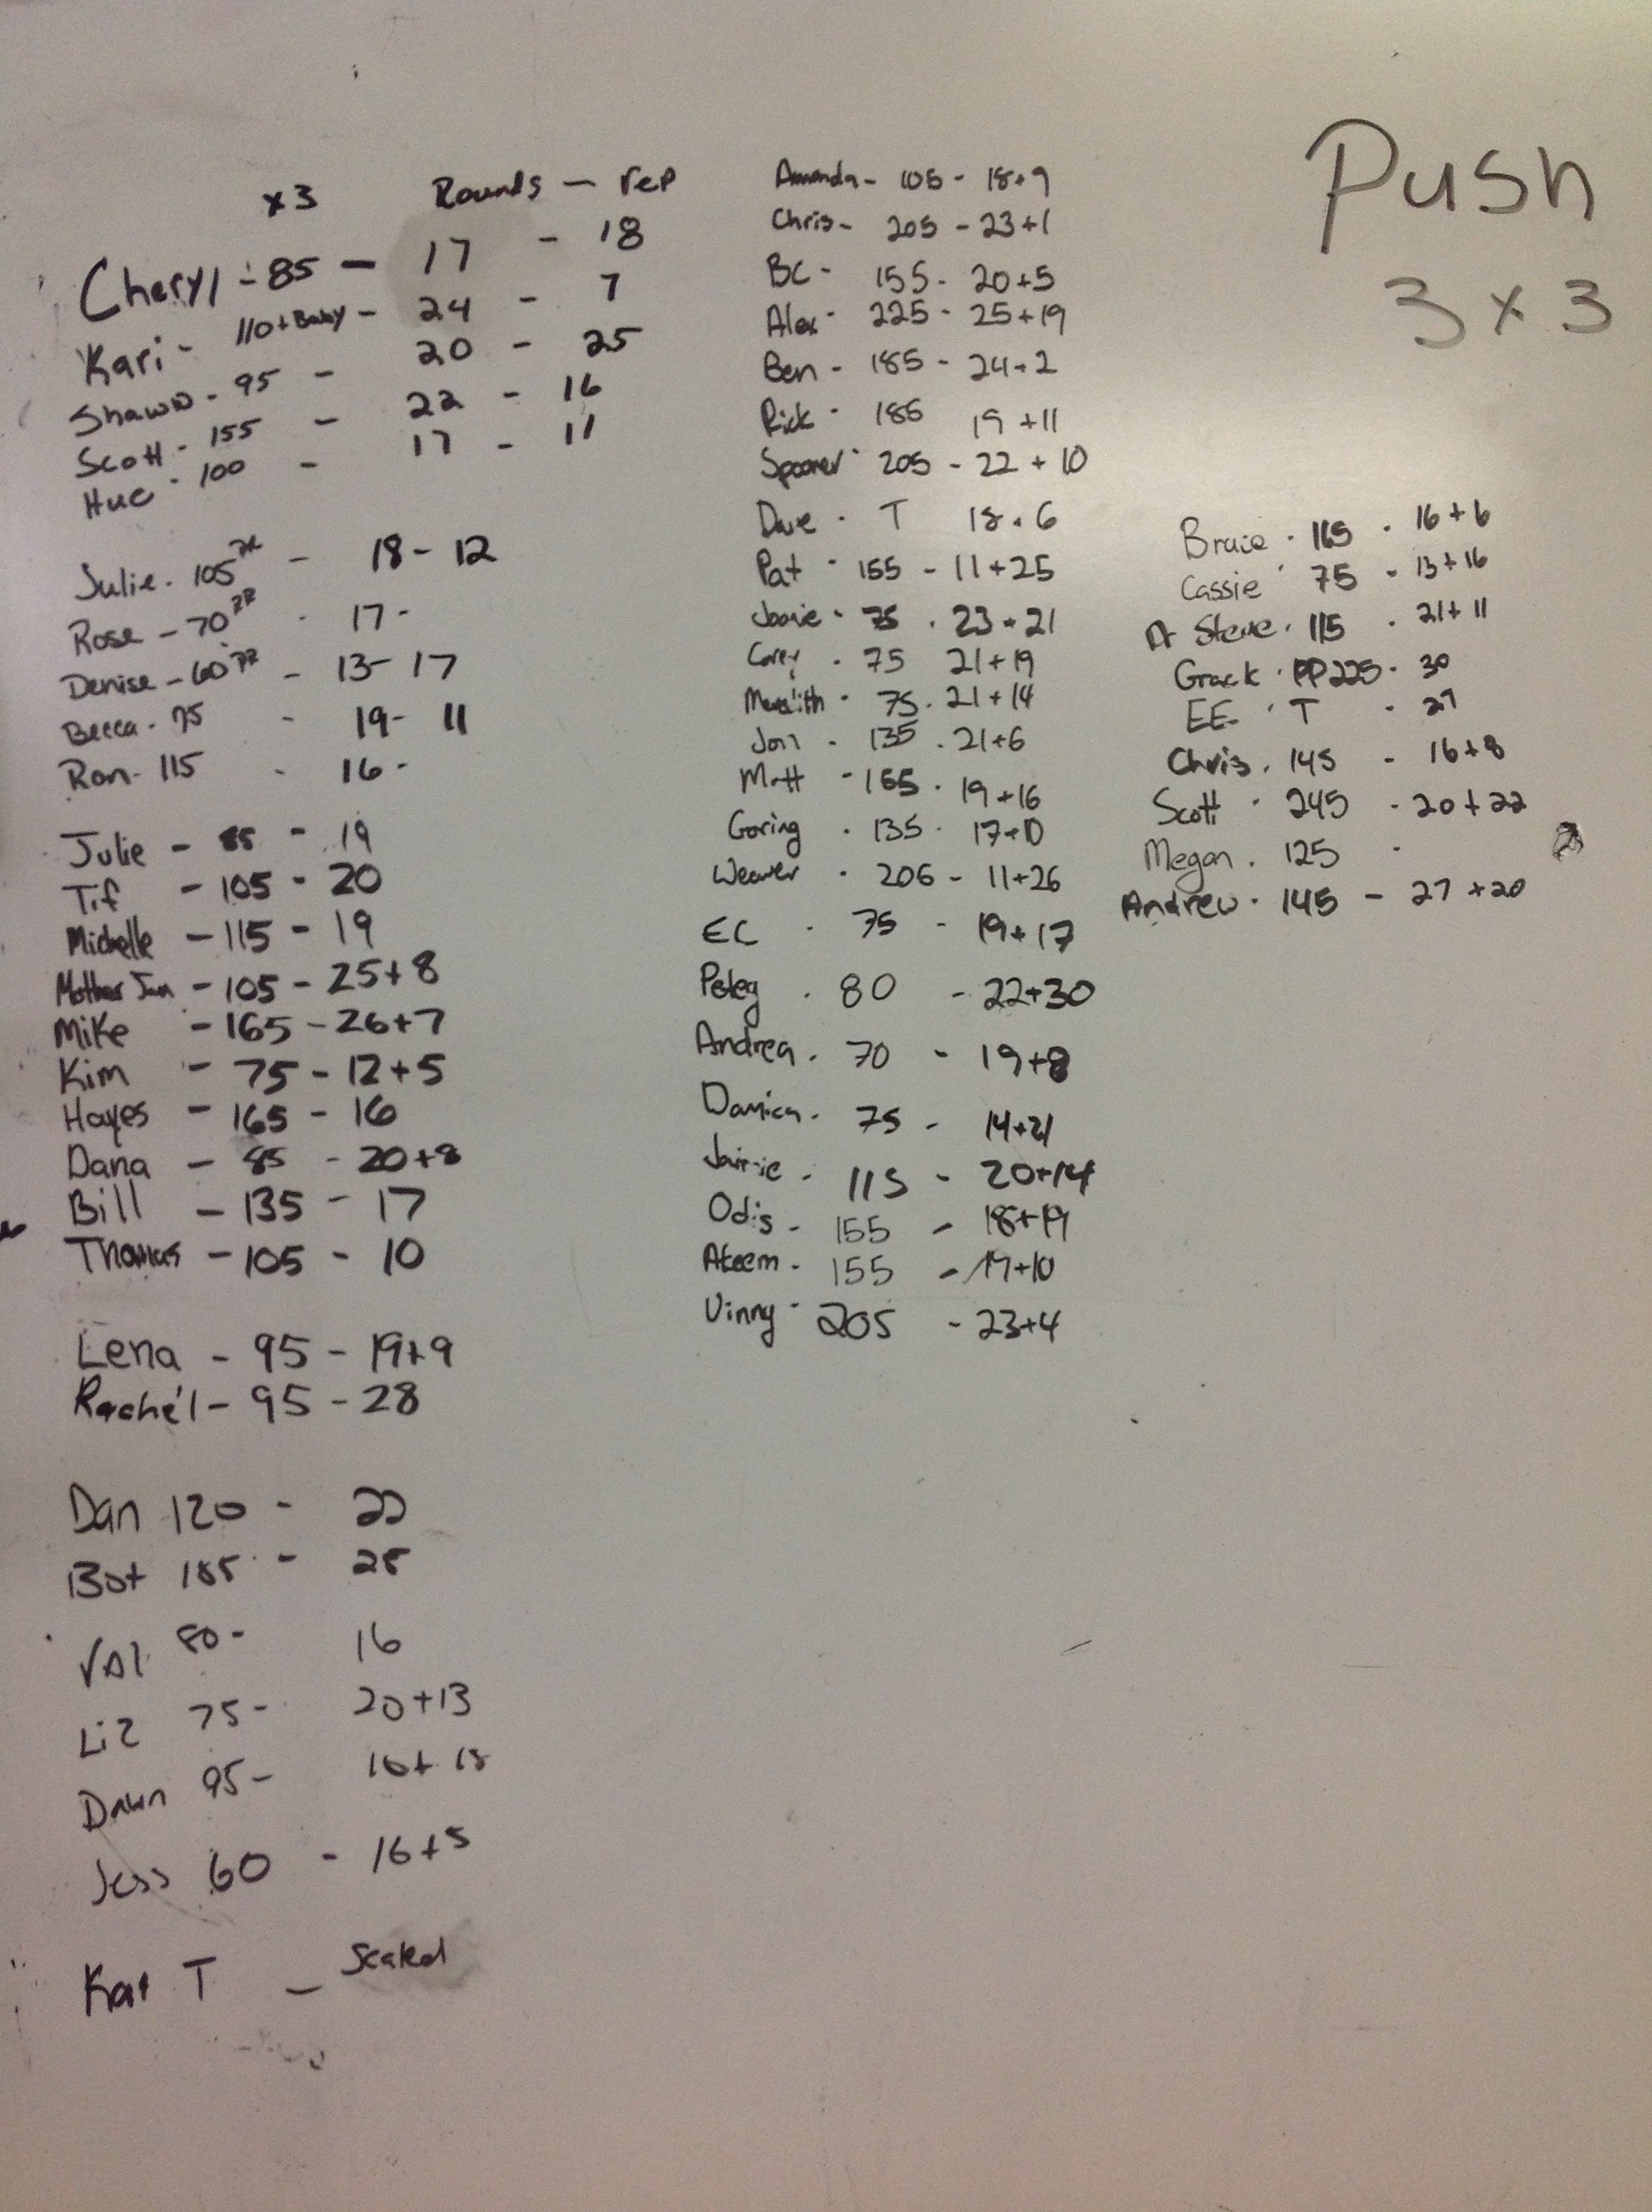 x3 Rounds - rep
Cheryl - 85 - 17 - 18
Kari - 110 + Baby - 24 - 7
Shawn - 95 - 20 - 25
Scott - 155 - 22 - 16
Hue - 100 - 17 - 11
Julie - 105 - 18 - 12
Rose - 70 - 17 -
Denise - 60 - 13 - 17
Becca - 75 - 19 - 11
Ron - 115 - 16 -
Julie - 85 - 19
Tif - 105 - 20
Michelle - 115 - 19
Mother Jan - 105 - 25+8
Mike - 165 - 26+7
Kim - 75 - 12+5
Hayes - 165 - 16
Dana - 85 - 20+8
Bill - 135 - 17
Thomas - 105 - 10
Lena - 95 - 19+9
Rachel - 95 - 28
Dan 120 - 22
Bot 185 - 25
Val 80 - 16
Liz 75 - 20+13
Dawn 95 - 16+18
Jess 60 - 16+5
Kat T - Scaled
Amanda - 105 - 18+9
Chris - 205 - 23+1
BC - 155 - 20+5
Alex - 225 - 25+19
Ben - 185 - 24+2
Rick - 185 19+11
Spooner - 205 - 22+10
Dave - T 18+6
Pat - 155 - 11+25
75 - 23+21
Corey - 75 21+19
Meredith - 75 - 21+14
Jon - 135 - 21+6
Matt - 155 - 19+16
Goring - 135 - 17+10
Weaver - 205 - 11+26
EC - 75 - 19+17
Peleg - 80 - 22+30
Andrea - 70 - 19+8
Danica - 75 - 14+21
Jaimie - 115 - 20+14
Odis - 155 - 18+19
Akeem - 155 - 19+10
Vinny - 205 - 23+4
Push
3 x 3
165 - 16+6
Cassie - 75 - 13+16
Steve - 115 - 21+11
PP225 - 30
EE - T - 27
Chris - 145 - 16+8
Scott - 245 - 20+22
Megan - 125 -
Andrew - 145 - 27+20